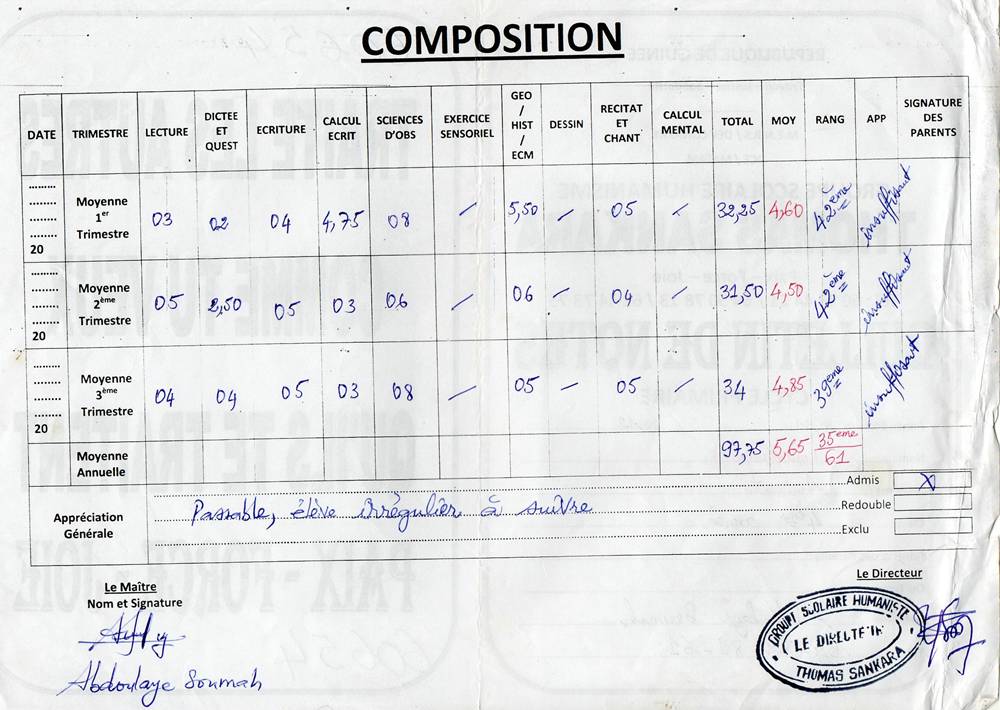 COMPOSITION
DATE TRIMESTRE LECTURE DICTEE ET QUEST ECRITURE CALCUL ECRIT SCIENCES D'OBS EXERCICE SENSORIEL GEO / HIST / ECM DESSIN RECITAT ET CHANT CALCUL MENTAL TOTAL MOY RANG APP SIGNATURE DES PARENTS
20 Moyenne 1er Trimestre 03 02 04 4,75 08 / 5,50 / 05 / 32,25 4,60 42ème insuffisant
20 Moyenne 2ème Trimestre 05 2,50 05 03 06 / 06 / 04 / 31,50 4,50 42ème insuffisant
20 Moyenne 3ème Trimestre 04 04 05 03 08 / 05 / 05 / 34 4,85 39ème insuffisant
Moyenne Annuelle 97,75 5,65 35ème/61
Appréciation Générale
Passable, élève irrégulier à suivre
Admis X
Redouble
Exclu
Le Maître
Nom et Signature
Abdoulaye Soumah
Le Directeur
GROUPE SCOLAIRE HUMANISTE
LE DIRECTEUR
THOMAS SANKARA